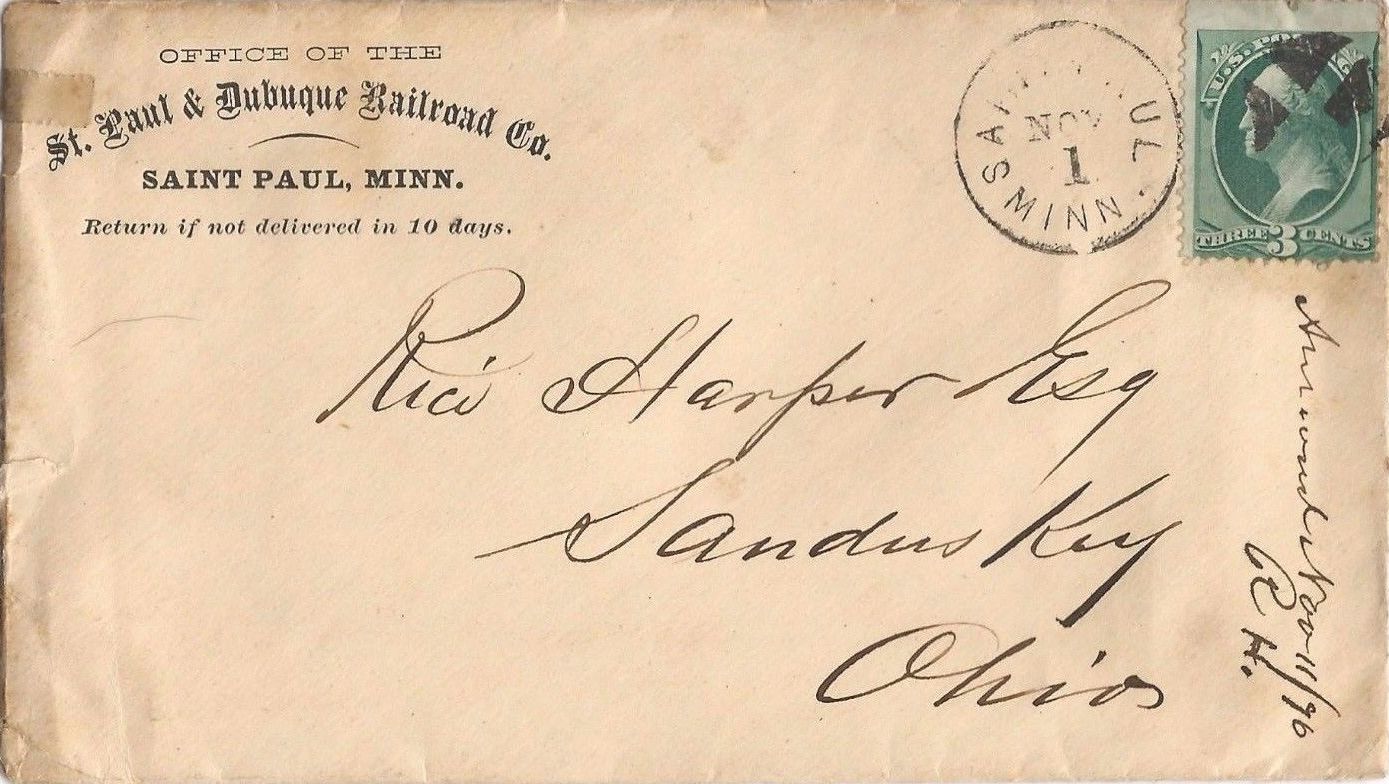 OFFICE OF THE
St. Paul & Dubuque Railroad Co.
SAINT PAUL, MINN.
Return if not delivered in 10 days.
NOV
1
MINN
U.S. PO
THREE 3 CENTS
Rice Harper Esq
Sandusky
Ohio
Nov 11/76
R H.